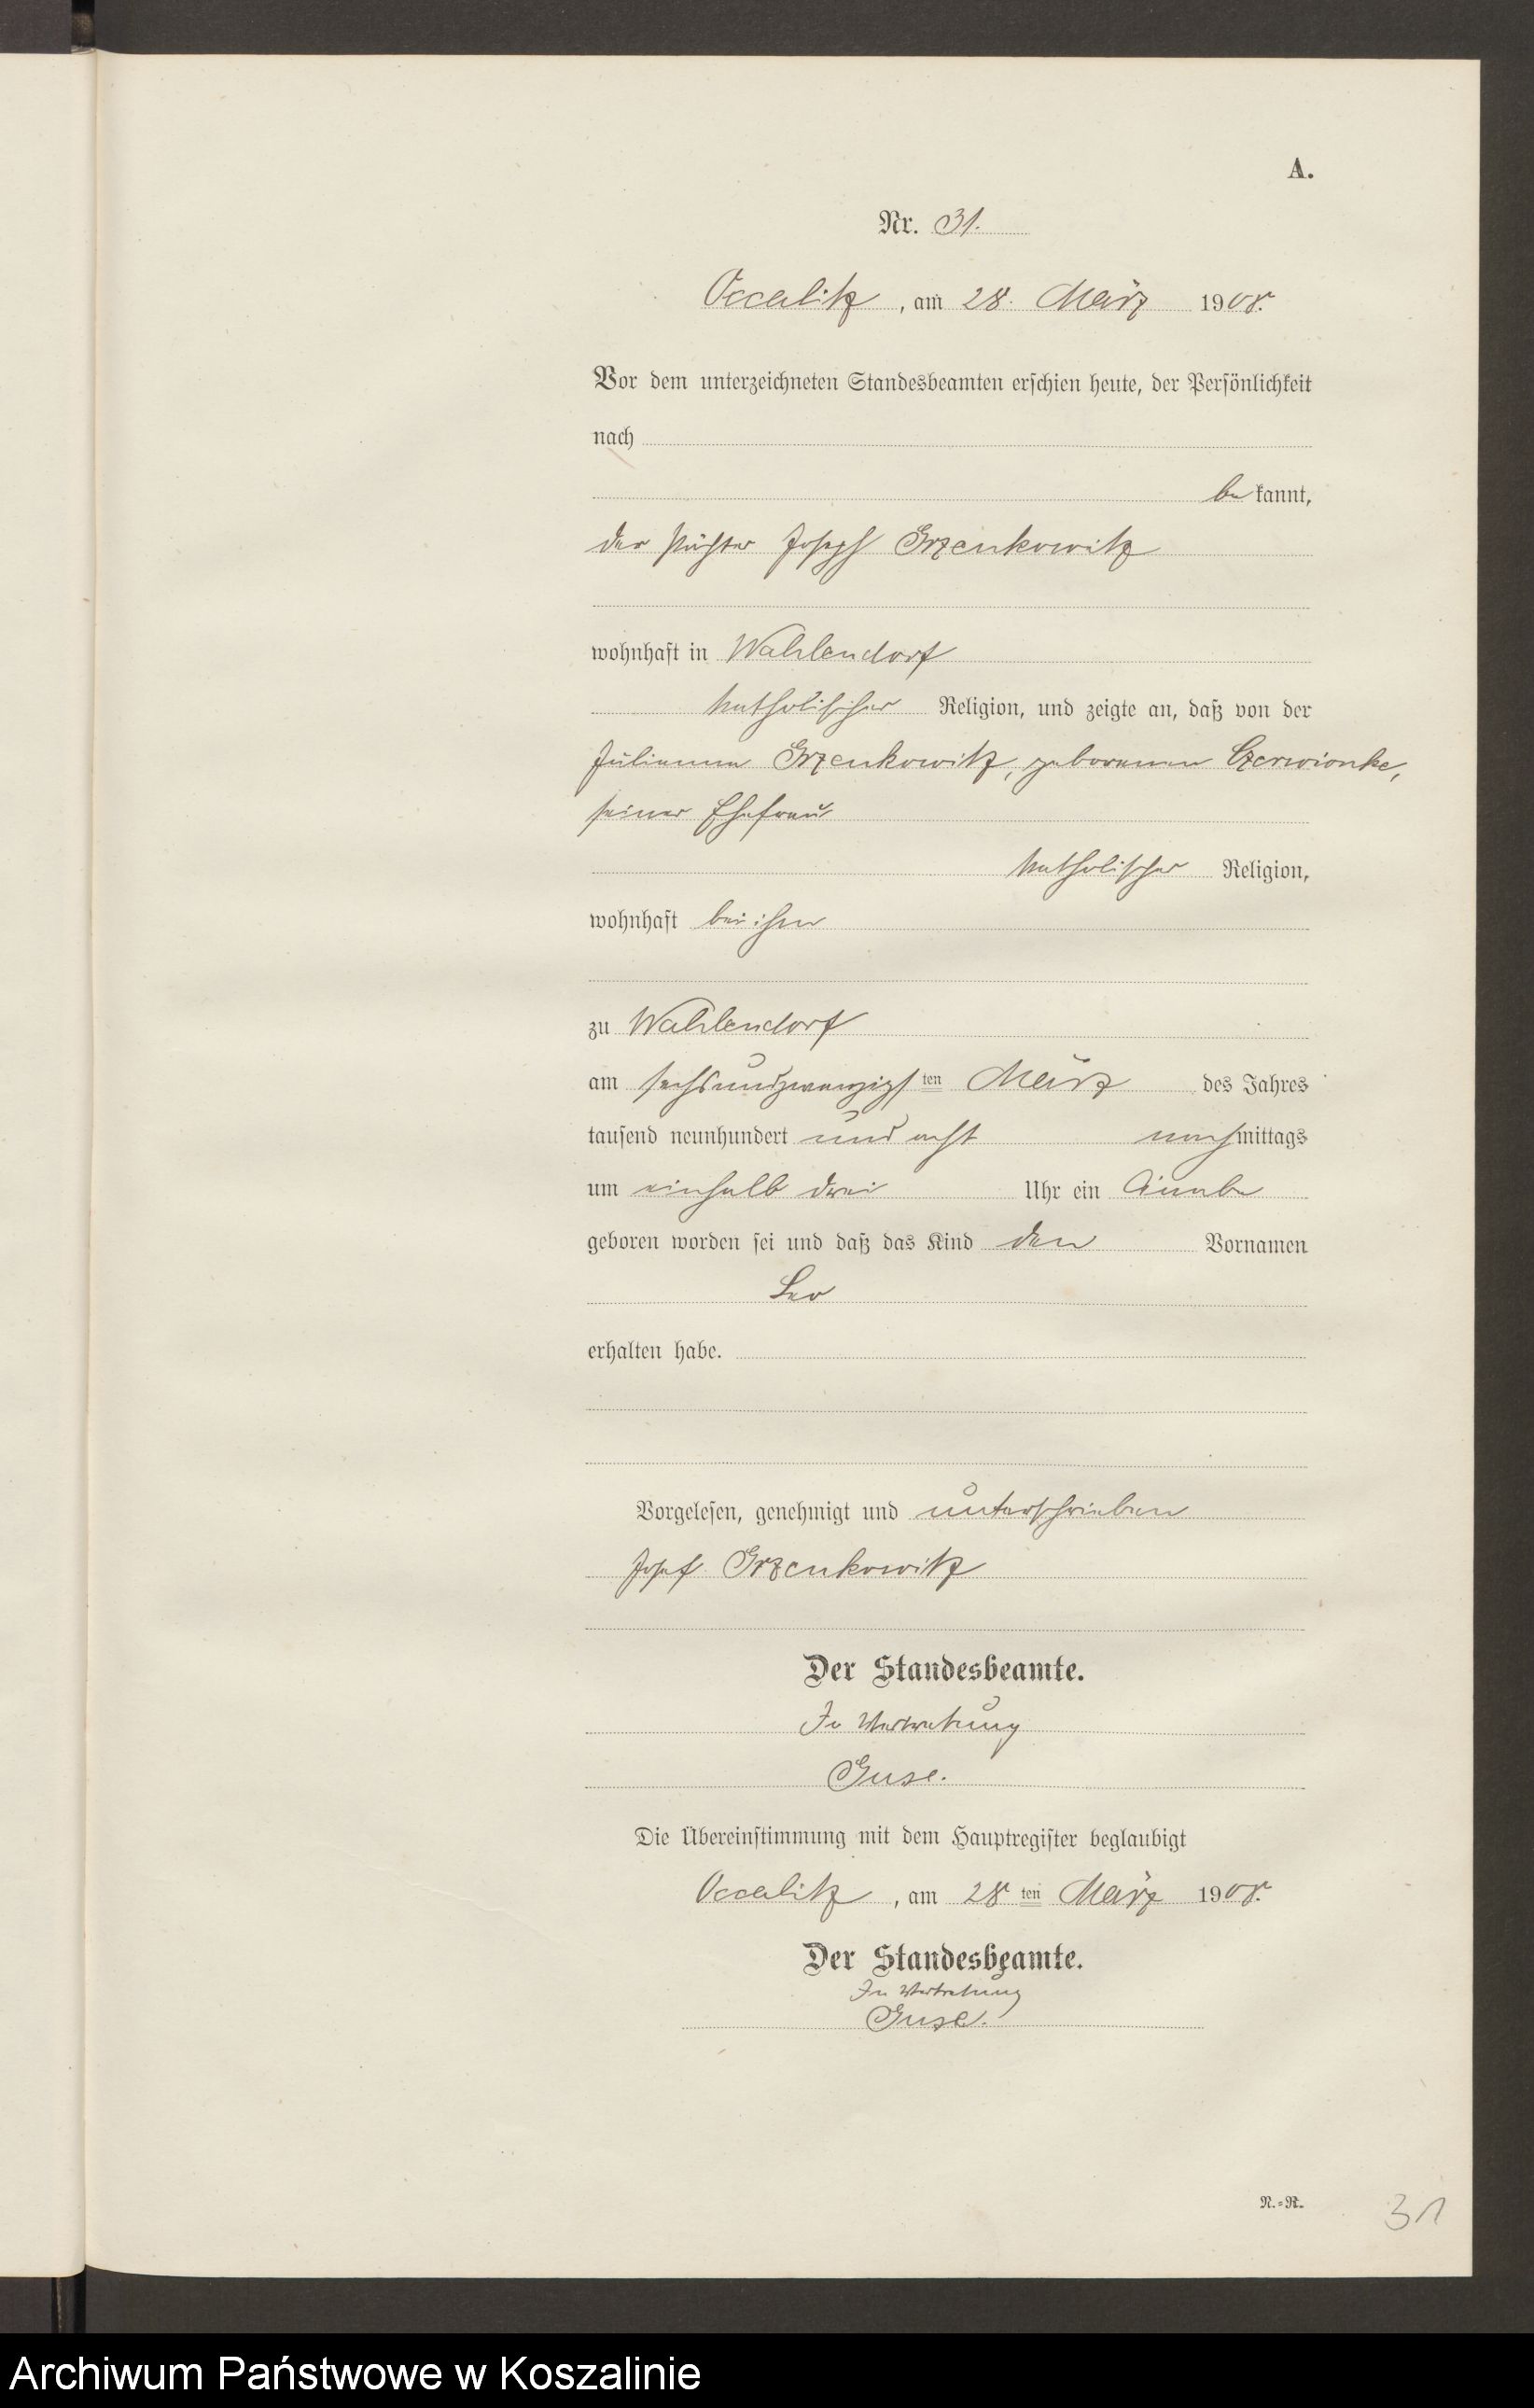 A.
Nr. 31.
Occalitz, am 28. März 1908.
Vor dem unterzeichneten Standesbeamten erschien heute, der Persönlichkeit
nach
be kannt,
der Pächter Joseph Grzenkowitz
wohnhaft in Wahlendorf
katholischer Religion, und zeigte an, daß von der
Julianna Grzenkowitz, geborenen Czerwionke,
seiner Ehefrau
katholischer Religion,
wohnhaft bei ihm
zu Wahlendorf
am sechsundzwanzigsten März des Jahres
tausend neunhundert und acht nachmittags
um einhalb drei Uhr ein Knabe
geboren worden sei und daß das Kind den Vornamen
Leo
erhalten habe.
Vorgelesen, genehmigt und unterschrieben
Josef Grzenkowitz
Der Standesbeamte.
In Vertretung
Guse.
Die Übereinstimmung mit dem Hauptregister beglaubigt
Occalitz, am 28ten März 1908.
Der Standesbeamte.
In Vertretung
Guse.
N.=R.
31
Archiwum Państwowe w Koszalinie